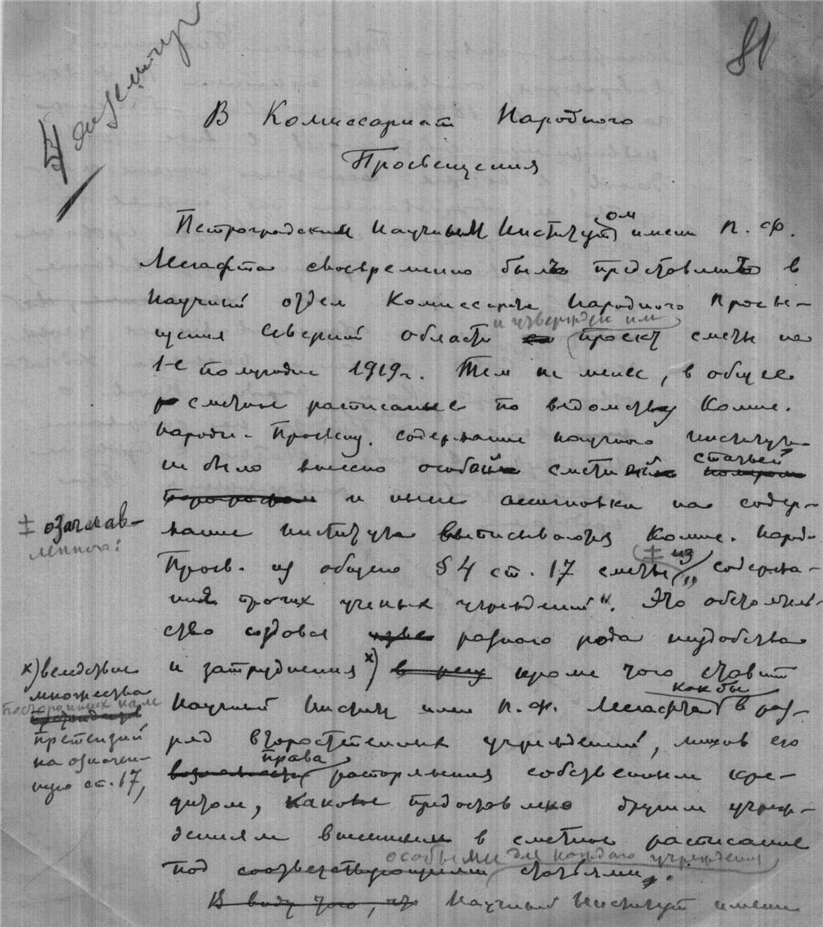 81
В Комиссариат Народного
Просвещения
Петроградским Научным Институтом имени П. Ф.
Лесгафта своевременно был представлен в
Научный отдел Комиссар. Народного Просве-
щения Северной области и утвержден им проект сметы на
1-е полугодие 1919 г. Тем не менее, в общее
сметное расписание по ведомству Комис.
Народн. Просвещ. содержание научного института
не было внесено особой сметной статьей
параграфом и ныне ассигновки на содер-
жание института выписываются Комис. Народ.
Просв. из общего § 4 ст. 17 сметы ± из „содержа-
ния прочих ученых учреждений“. Это обстоятель-
ство создавая разного рода неудобства
и затруднения x) кроме того ставит
Научный Инстит. имени П. Ф. Лесгафта как бы в раз-
ряд второстепенных учреждений, лишая его
права распоряжения собственным кре-
дитом, каковое предоставлено другим учреж-
дениям внесенным в сметное расписание
под соответствующими особыми для каждого учреждения статьями.
В виду того, что Научный Институт имени
± озаглав-
ленного:
x) вследствие
множества
посторонних
претензий
на означен-
ную ст. 17,